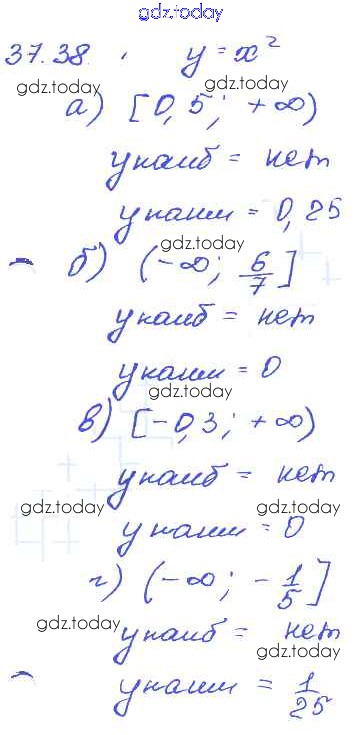 gdz.today
37.38. y = x²
gdz.today gdz.today
а) [0,5; +∞)
yнаиб = нет
yнаим = 0,25
gdz.today
б) (-∞; 6/7]
yнаиб = нет
gdz.today
yнаим = 0
в) [-0,3; +∞)
yнаиб = нет
gdz.today gdz.today
yнаим = 0
г) (-∞; -1/5]
gdz.today
yнаиб = нет
gdz.today
yнаим = 1/25